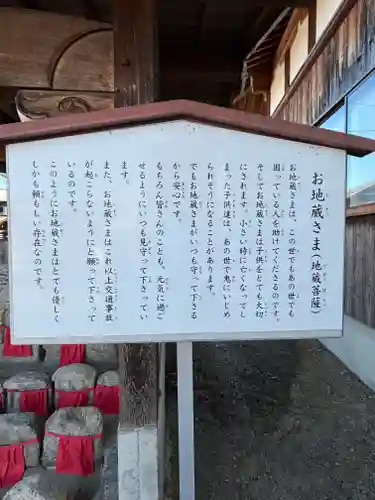 お地蔵さま(地蔵菩薩)
お地蔵さまは、この世でもあの世でも
困っている人を助けてくださるのです。
そしてお地蔵さまは子供をとても大切
にされます。小さい時に亡くなってし
まった子供達は、あの世で鬼にいじめ
られそうになることがあります。
でもお地蔵さまがいつも守って下さる
から安心です。
もちろん皆さんのことも、元気に過ご
せるようにいつも見守って下さってい
ます。
また、お地蔵さまはこれ以上交通事故
が起こらないようにと願って下さって
いるのです。
このようにお地蔵さまはとても優しく
しかも頼もしい存在なのです。